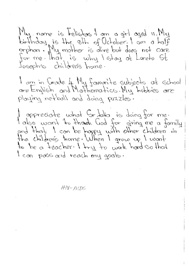 My name is I am a girl aged 11. My
birthday is the 9th of October. I am a half
orphan. My mother is alive but does not care
for me that is why I stay at Loreto St
Joseph's children's home.
I am in Grade 4. My favourite subjects at school
are English and Mathematics. My hobbies are
playing netball and doing puzzles.
I appreciate what is doing for me.
I also want to thank God for giving me a family
and that I can be happy with other children in
the children's home. When I grow up I want
to be a teacher. I try to work hard so that
I can pass and reach my goals.